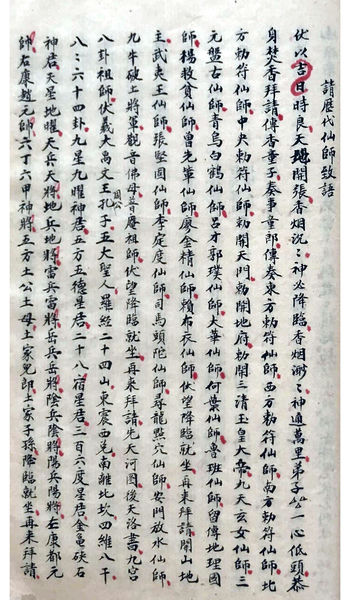 請歷代仙師致語
伏以吉日時良天地開張香烟沉沉神必降臨香烟渺渺神通萬里弟子厶一心低頭恭
身焚香拜請傳香童子奏事童郎傳奏東方勅符仙師西方勅符仙師南方勅符仙師北
方勅符仙師中央勅符仙師勅開天門勅開地府勅開三清玉皇大帝九天玄女仙師三
元盤古仙師青烏白鶴仙師呂才郭璞仙師大華仙師何葉仙師魯班仙師留傳地理國
師楊救貧仙師曾光軍仙師廖金精仙師賴布衣仙師伏望降臨就坐再來拜請開山地
主武夷王仙師張堅固仙師李定度仙師司馬頭陀仙師尋龍點穴仙師安門放水仙師
九牛破土將軍觀音佛母普庵祖師伏望降臨就坐再來拜請先天河圖後天洛書九宮
八卦祖師伏羲大禹文王周公孔子五大聖人羅經二十四山東震西兌南離北坎四維八干
八八六十四卦九星九曜神居五方五德星居二十八宿星居三百六度星居金龜硤石
神君天星地曜天兵天將地兵地將雷兵雷將岳兵岳將陰兵陰將陽兵陽將左康都元
帥右康趙元帥六丁六甲神將五方土公土母土家兒郎土家子孫降臨就坐再來拜請